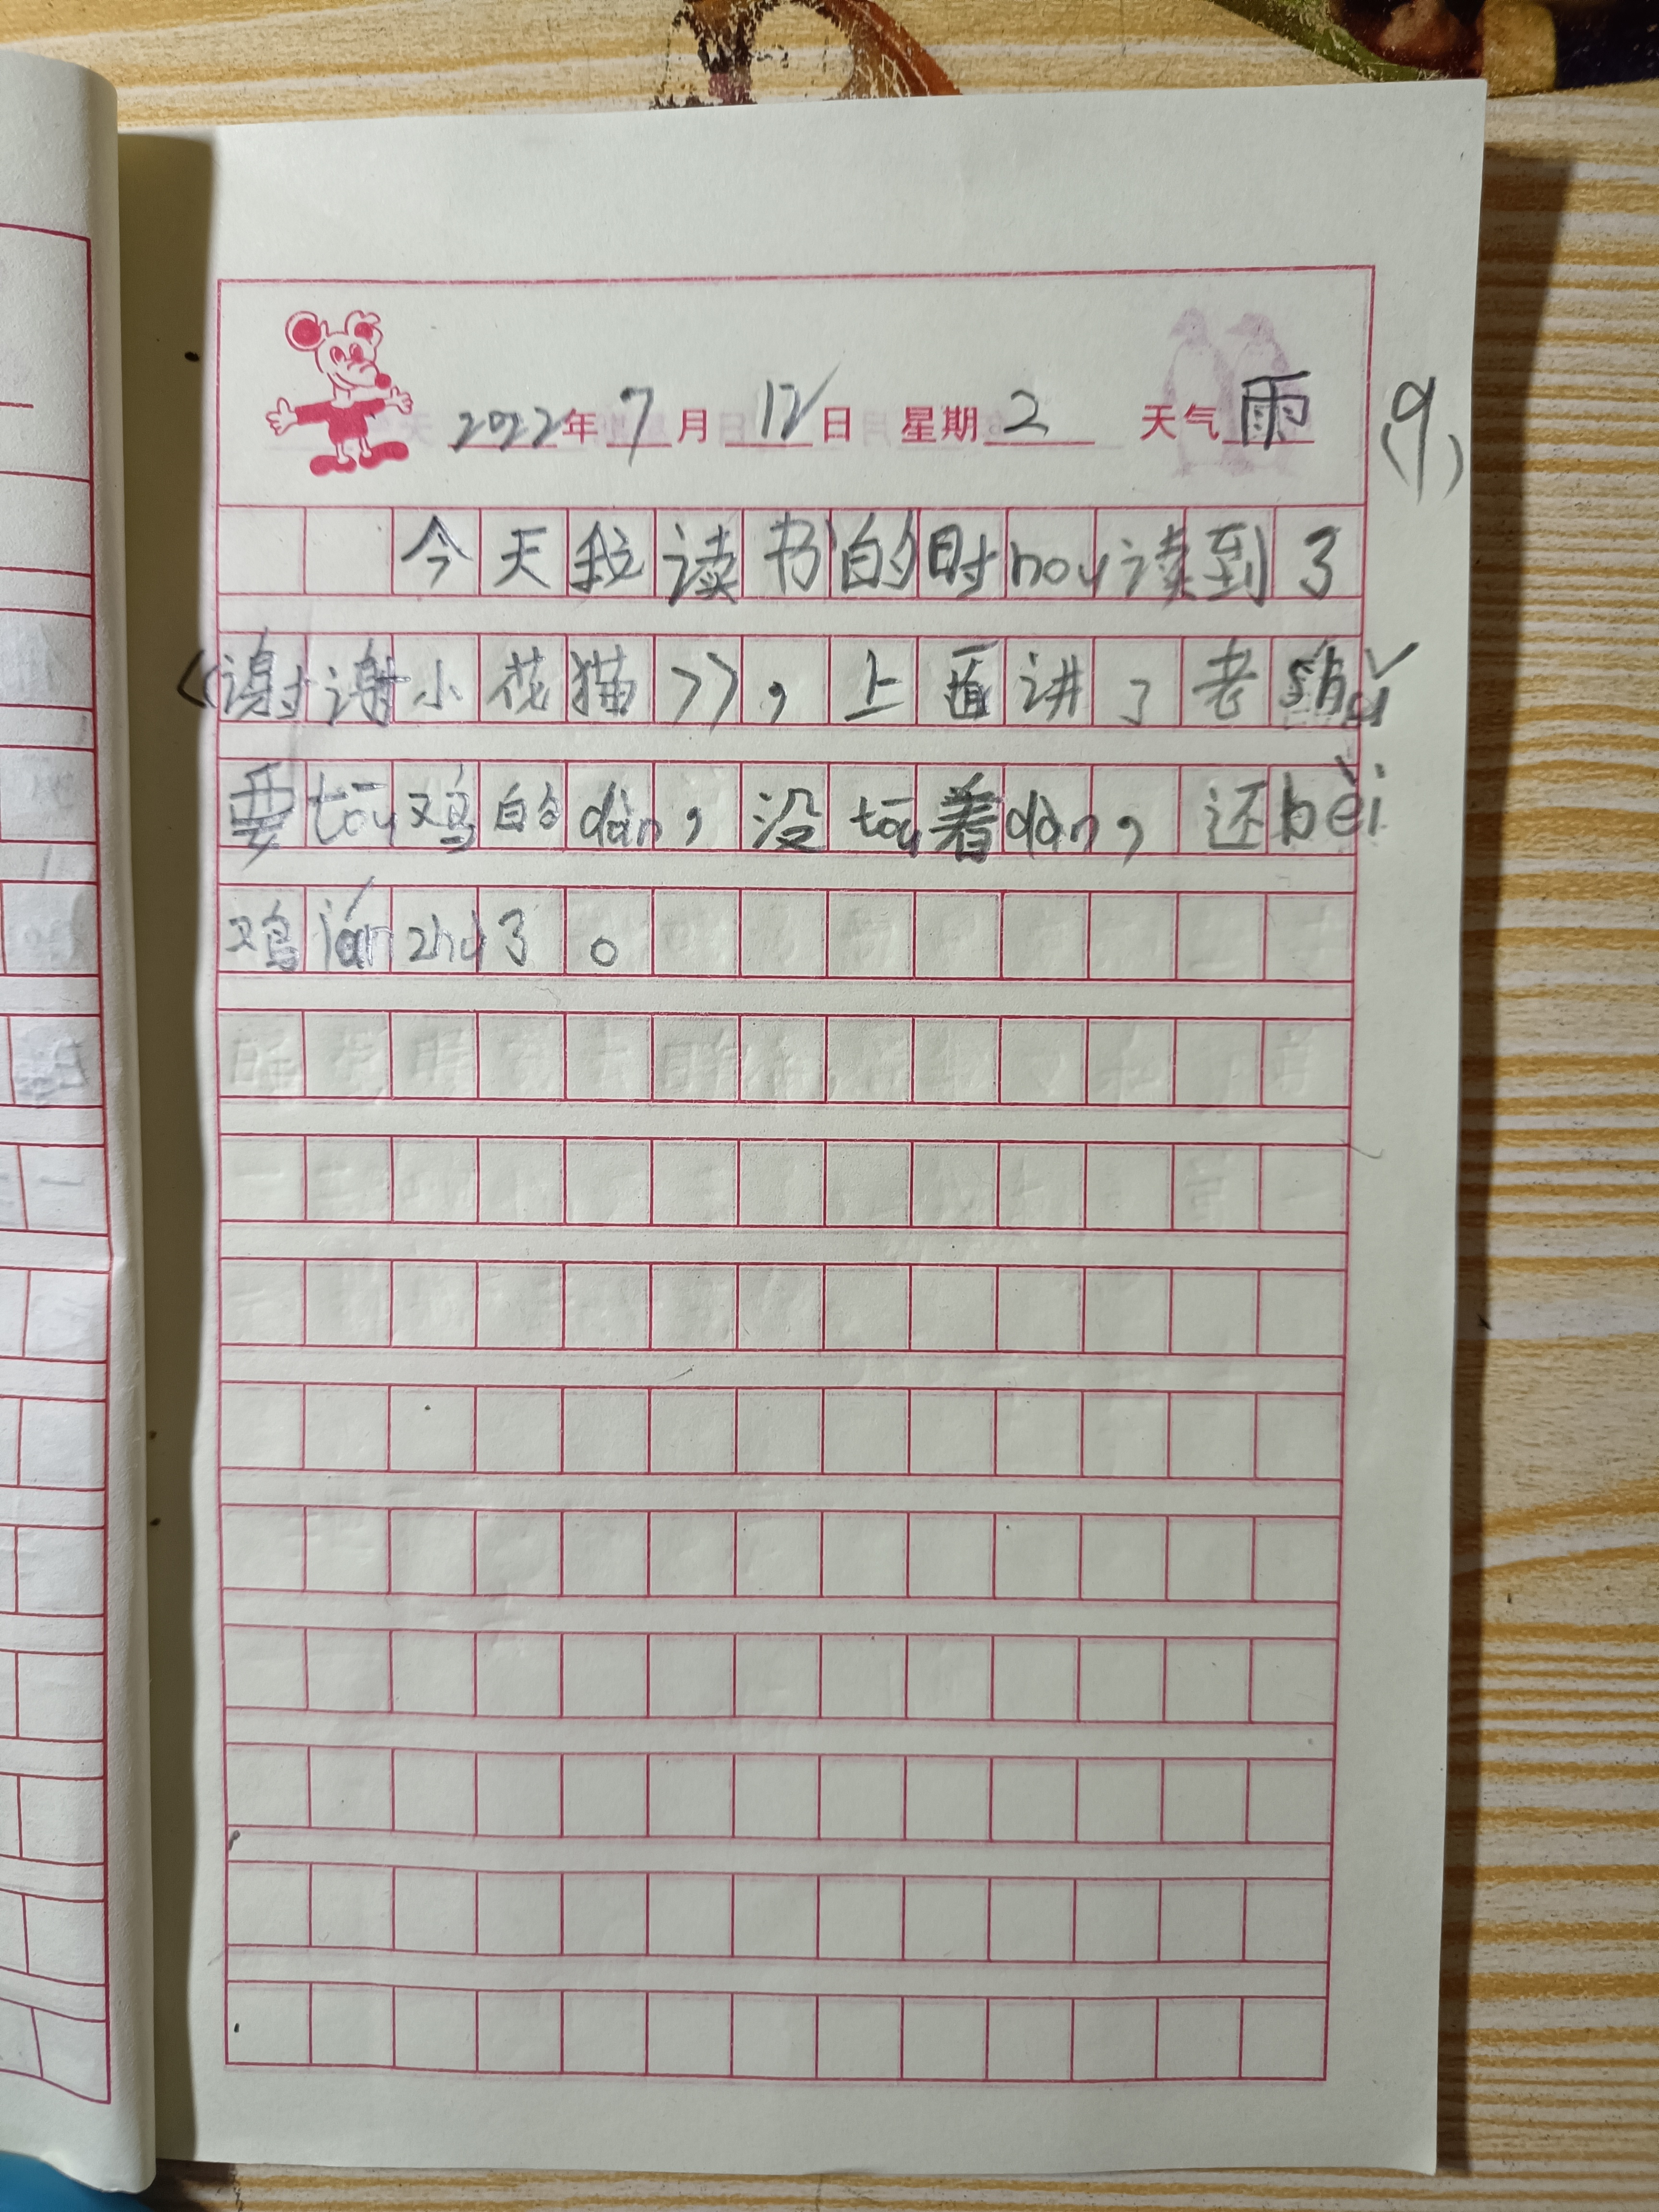 2022年 7月 12日 星期 2 天气 雨 (9)
今天我读书的时hou读到了
《谢谢小花猫》，上面讲了老shǔ
要tōu鸡的dàn，没tōu着dàn，还bèi
鸡 zhu了。